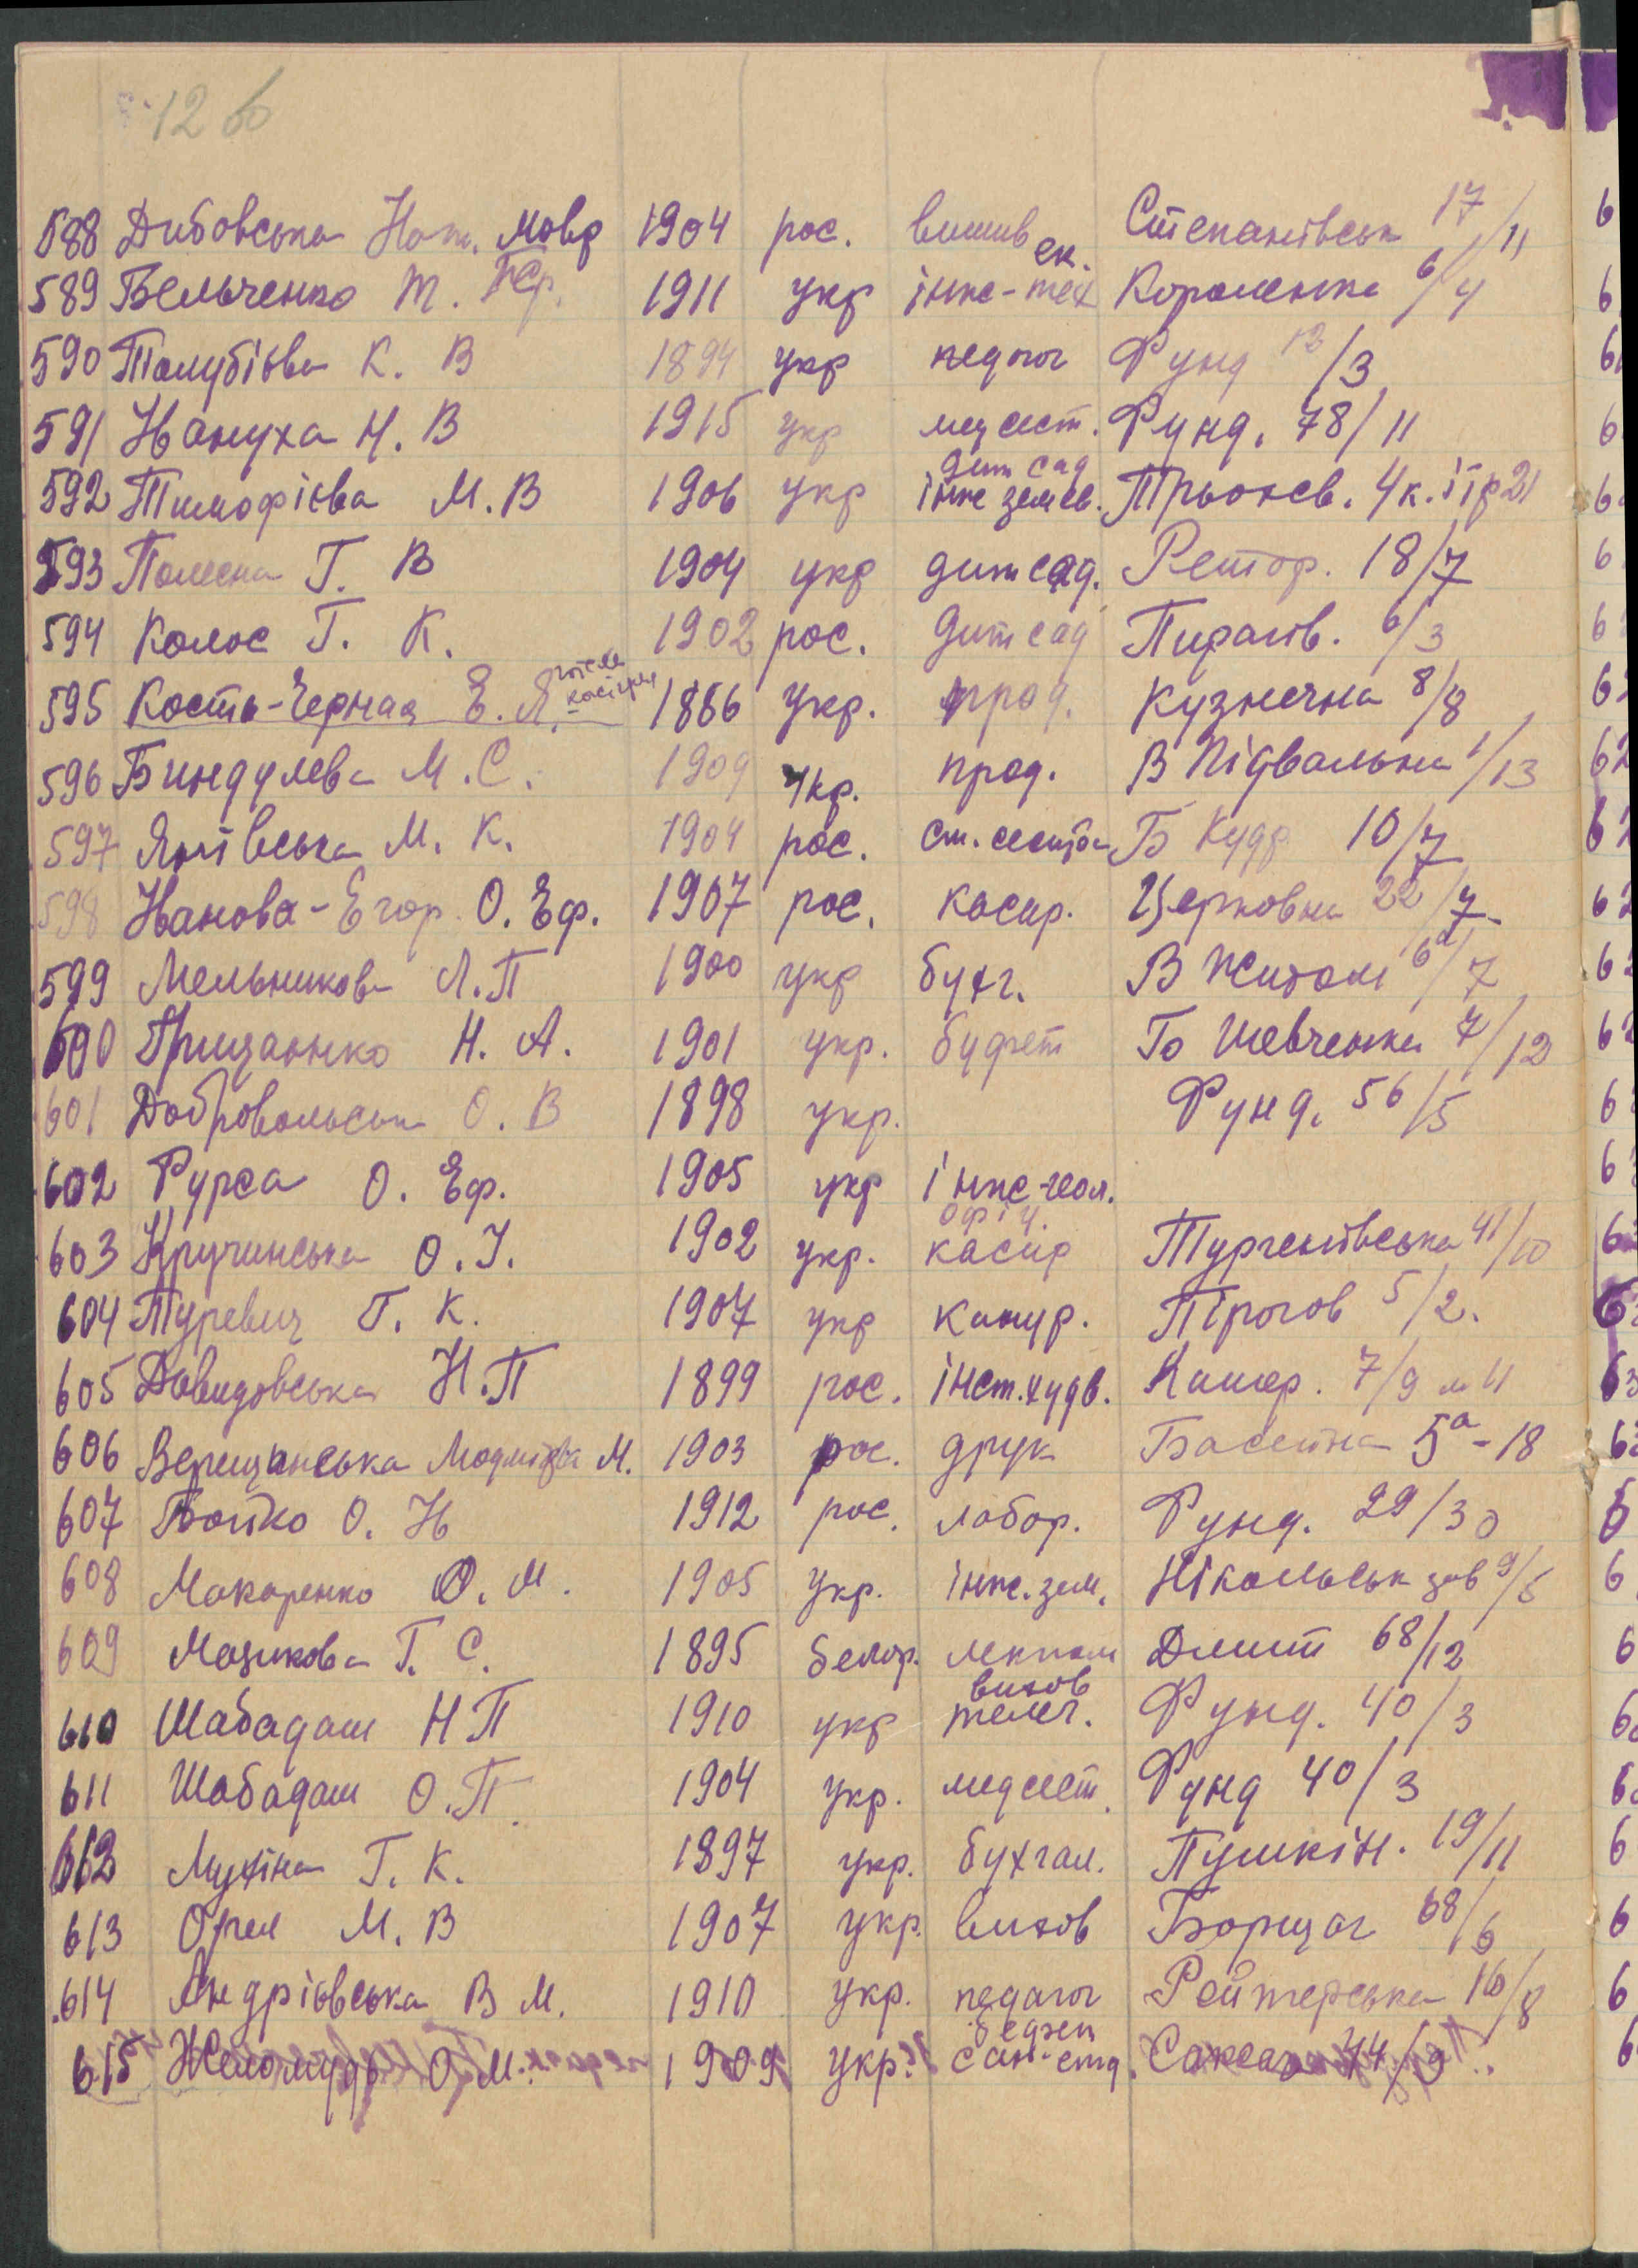 12 об
588 Дибовська Нат. Мовр 1904 рос. вишив ек. Степанівськ 17/11
589 Бельченко Т. Гр. 1911 укр інже-тех Короленка 6/4
590 Голубієва К. В 1894 укр педагог Фунд 12/3
591 Нануха Н. В 1915 укр медсест. Фунд. 78/11
592 Тимофієва М. В 1906 укр інже земев. Прьонев. 4 к.
дит сад
593 Полесна Г. В 1904 укр дитсад. Ретор. 18/7
594 Колос Г. К. 1902 рос. дитсад Пирогів. 6/3
595 Кость-Черная Е. Я. 1886 укр. прод. Кузнечна 8/8
596 Биндулева М. С. 1909 укр. прод. В Підвальна 1/13
597 Янівська М. К. 1904 рос. ст. сестра Б Кудр 10/7
598 Нанова-Егор. О. Еф. 1907 рос. касир. Церковна 22/7
599 Мельникова Л. П 1900 укр бухг. В Житом 6а/7
600 Грищанко Н. А. 1901 укр. буфет Го Шевченка 7/12
601 Добровольськ О. В 1898 укр. Фунд. 56/5
602 Рурса О. Еф. 1905 укр інже-геол.
603 Кручинська О. І. 1902 укр. касир Тургенівська 41/10
офіц.
604 Гуревич Г. К. 1907 укр Пірогов 5/2.
605 Давидовська Н. П 1899 рос. інст. худв. 7/9
606 Верещанська М. 1903 рос. друк Басейна 5а-18
607 Бойко О. Н 1912 рос. лабор. Фунд. 29/30
608 Макаренко О. М. 1905 укр. інже. зем. Нікольськ
609 Мазикова Г. С. 1895 белор. лекпом Дмит 68/12
610 Шабадаш Н П 1910 укр телег. Фунд. 40/3
вихов
611 Шабадаш О. П. 1904 укр. медсест. Фунд 40/3
612 Мухіна Г. К. 1897 укр. бухгал. Пушкін. 19/11
613 Орел М. В 1907 укр. вихов Борщаг 68/6
614 Андрієвська В М. 1910 укр. педагог Рейтерська 16/8
615 О. М. 1909 укр. сан-